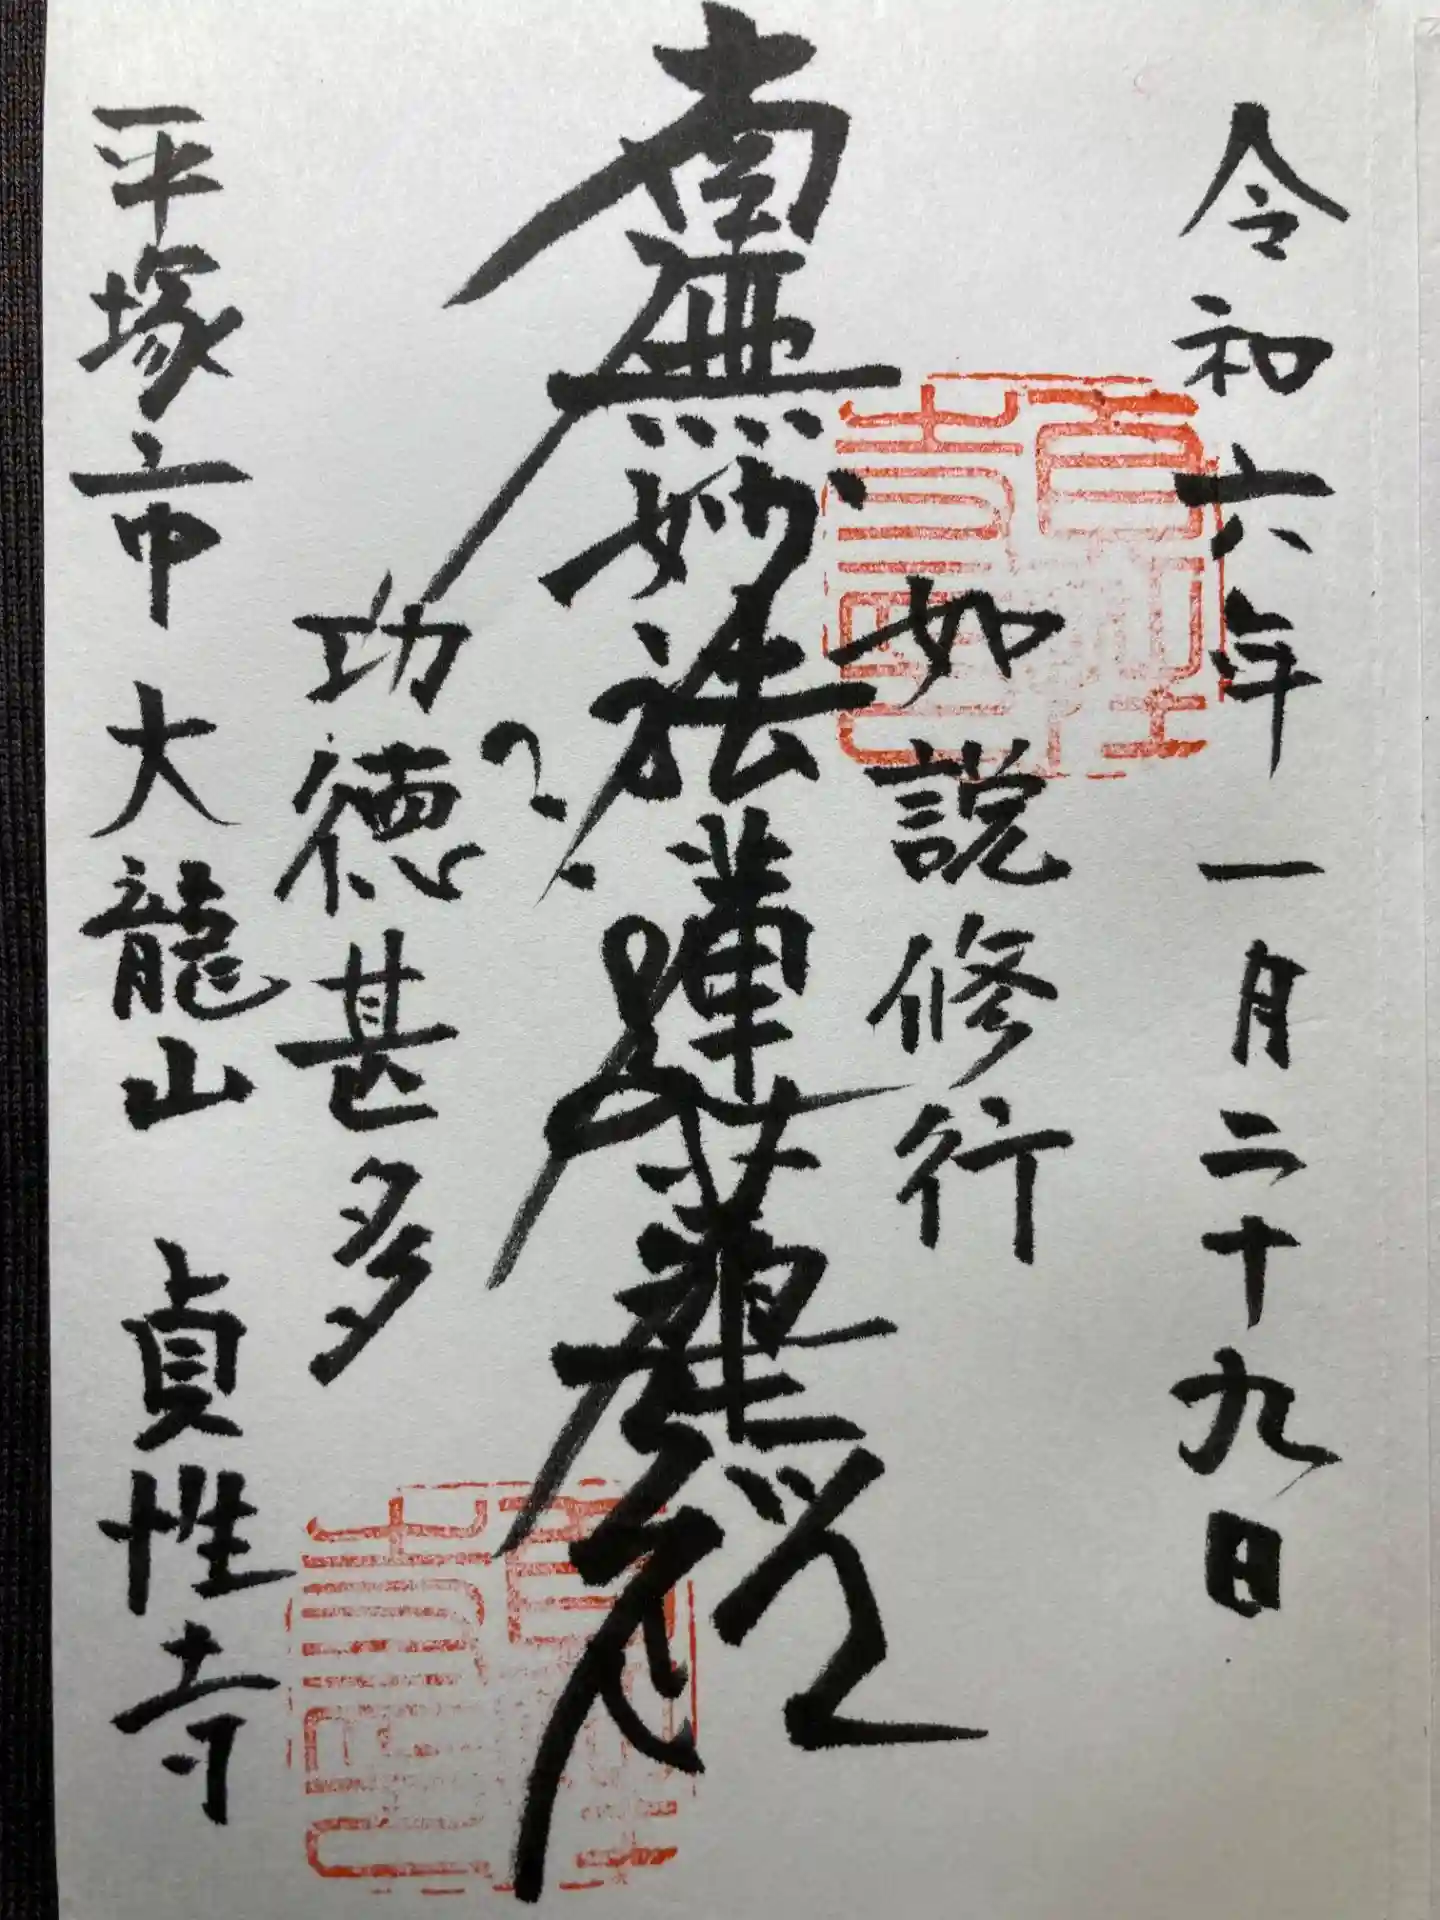 令和六年一月二十九日
如説修行
南無妙法蓮華經
功徳甚多
平塚市大龍山 貞性寺